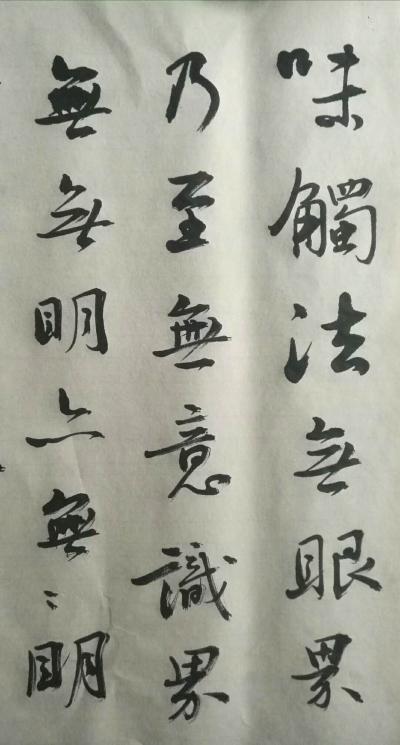 味觸法無眼界
乃至無意識界
無無明亦無〻明